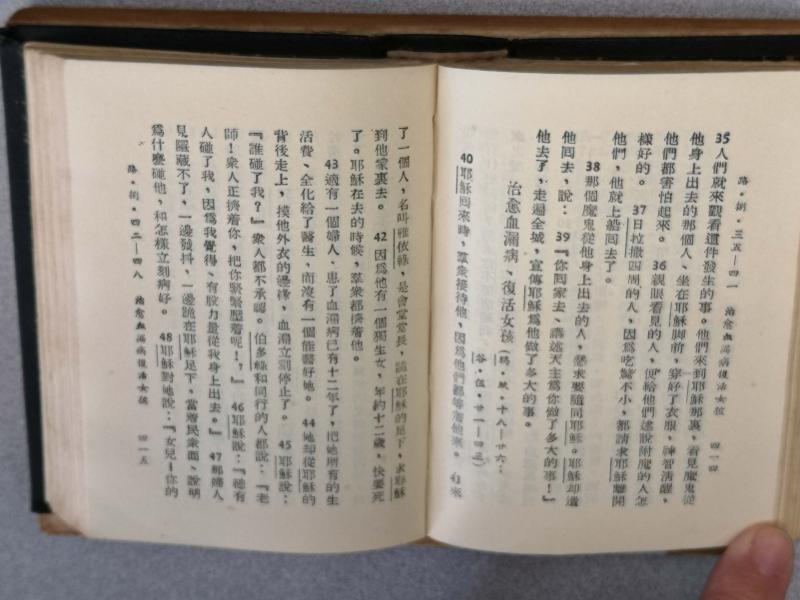 路·捌·三五—四一　治愈血漏病復活女孩　四一四
35人們就來觀看這件發生的事。他們來到耶穌那裏，看見魔鬼從
他身上出去的那個人、坐在耶穌脚前，穿好了衣服，神智清醒，
他們都害怕起來。36親眼看見的人，便給他們述說附魔的人怎
樣好的。37日拉撒四周的人，因爲吃驚不小，都請求耶穌離開
他們，他就上船回去了。
38那個魔鬼從他身上出去的人，懇求要隨同耶穌。耶穌却遣
他回去，說：39『你回家去、講述天主爲你做了多大的事！』
他去了，走遍全城、宣傳耶穌爲他做了多大的事。
治愈血漏病、復活女孩（瑪·玖·十八—廿六：
谷·伍·廿一—四三）
40耶穌回來時，羣衆接待他，因爲他們都等着他來。
了一個人，名叫雅依祿，是會堂堂長，跪在耶穌的足下，求耶穌
到他家裏去。42因爲他有一個獨生女，年約十二歲，快要死
了。耶穌在去的時候，羣衆都擠着他。
43適有一個婦人、患了血漏病已有十二年了，把她所有的生
活費、全化給了醫生，而沒有一個能醫好她。44她却從耶穌的
背後走上，摸他外衣的邊緣，血漏立刻停止了。45耶穌說：
『誰碰了我？』衆人都不承認。伯多祿和同行的人都說：『老
師！衆人正擠着你，把你緊緊壓着呢！』46耶穌說：『總有
人碰了我，因爲我覺得、有股力量從我身上出去。』47那婦人
見隱藏不了，一邊發抖，一邊跪在耶穌足下，當着民衆面、說明
爲什麼碰他，和怎樣立刻病好。48耶穌對她說：『女兒！你的
路·捌·四二—四八　治愈血漏病復活女孩　四一五